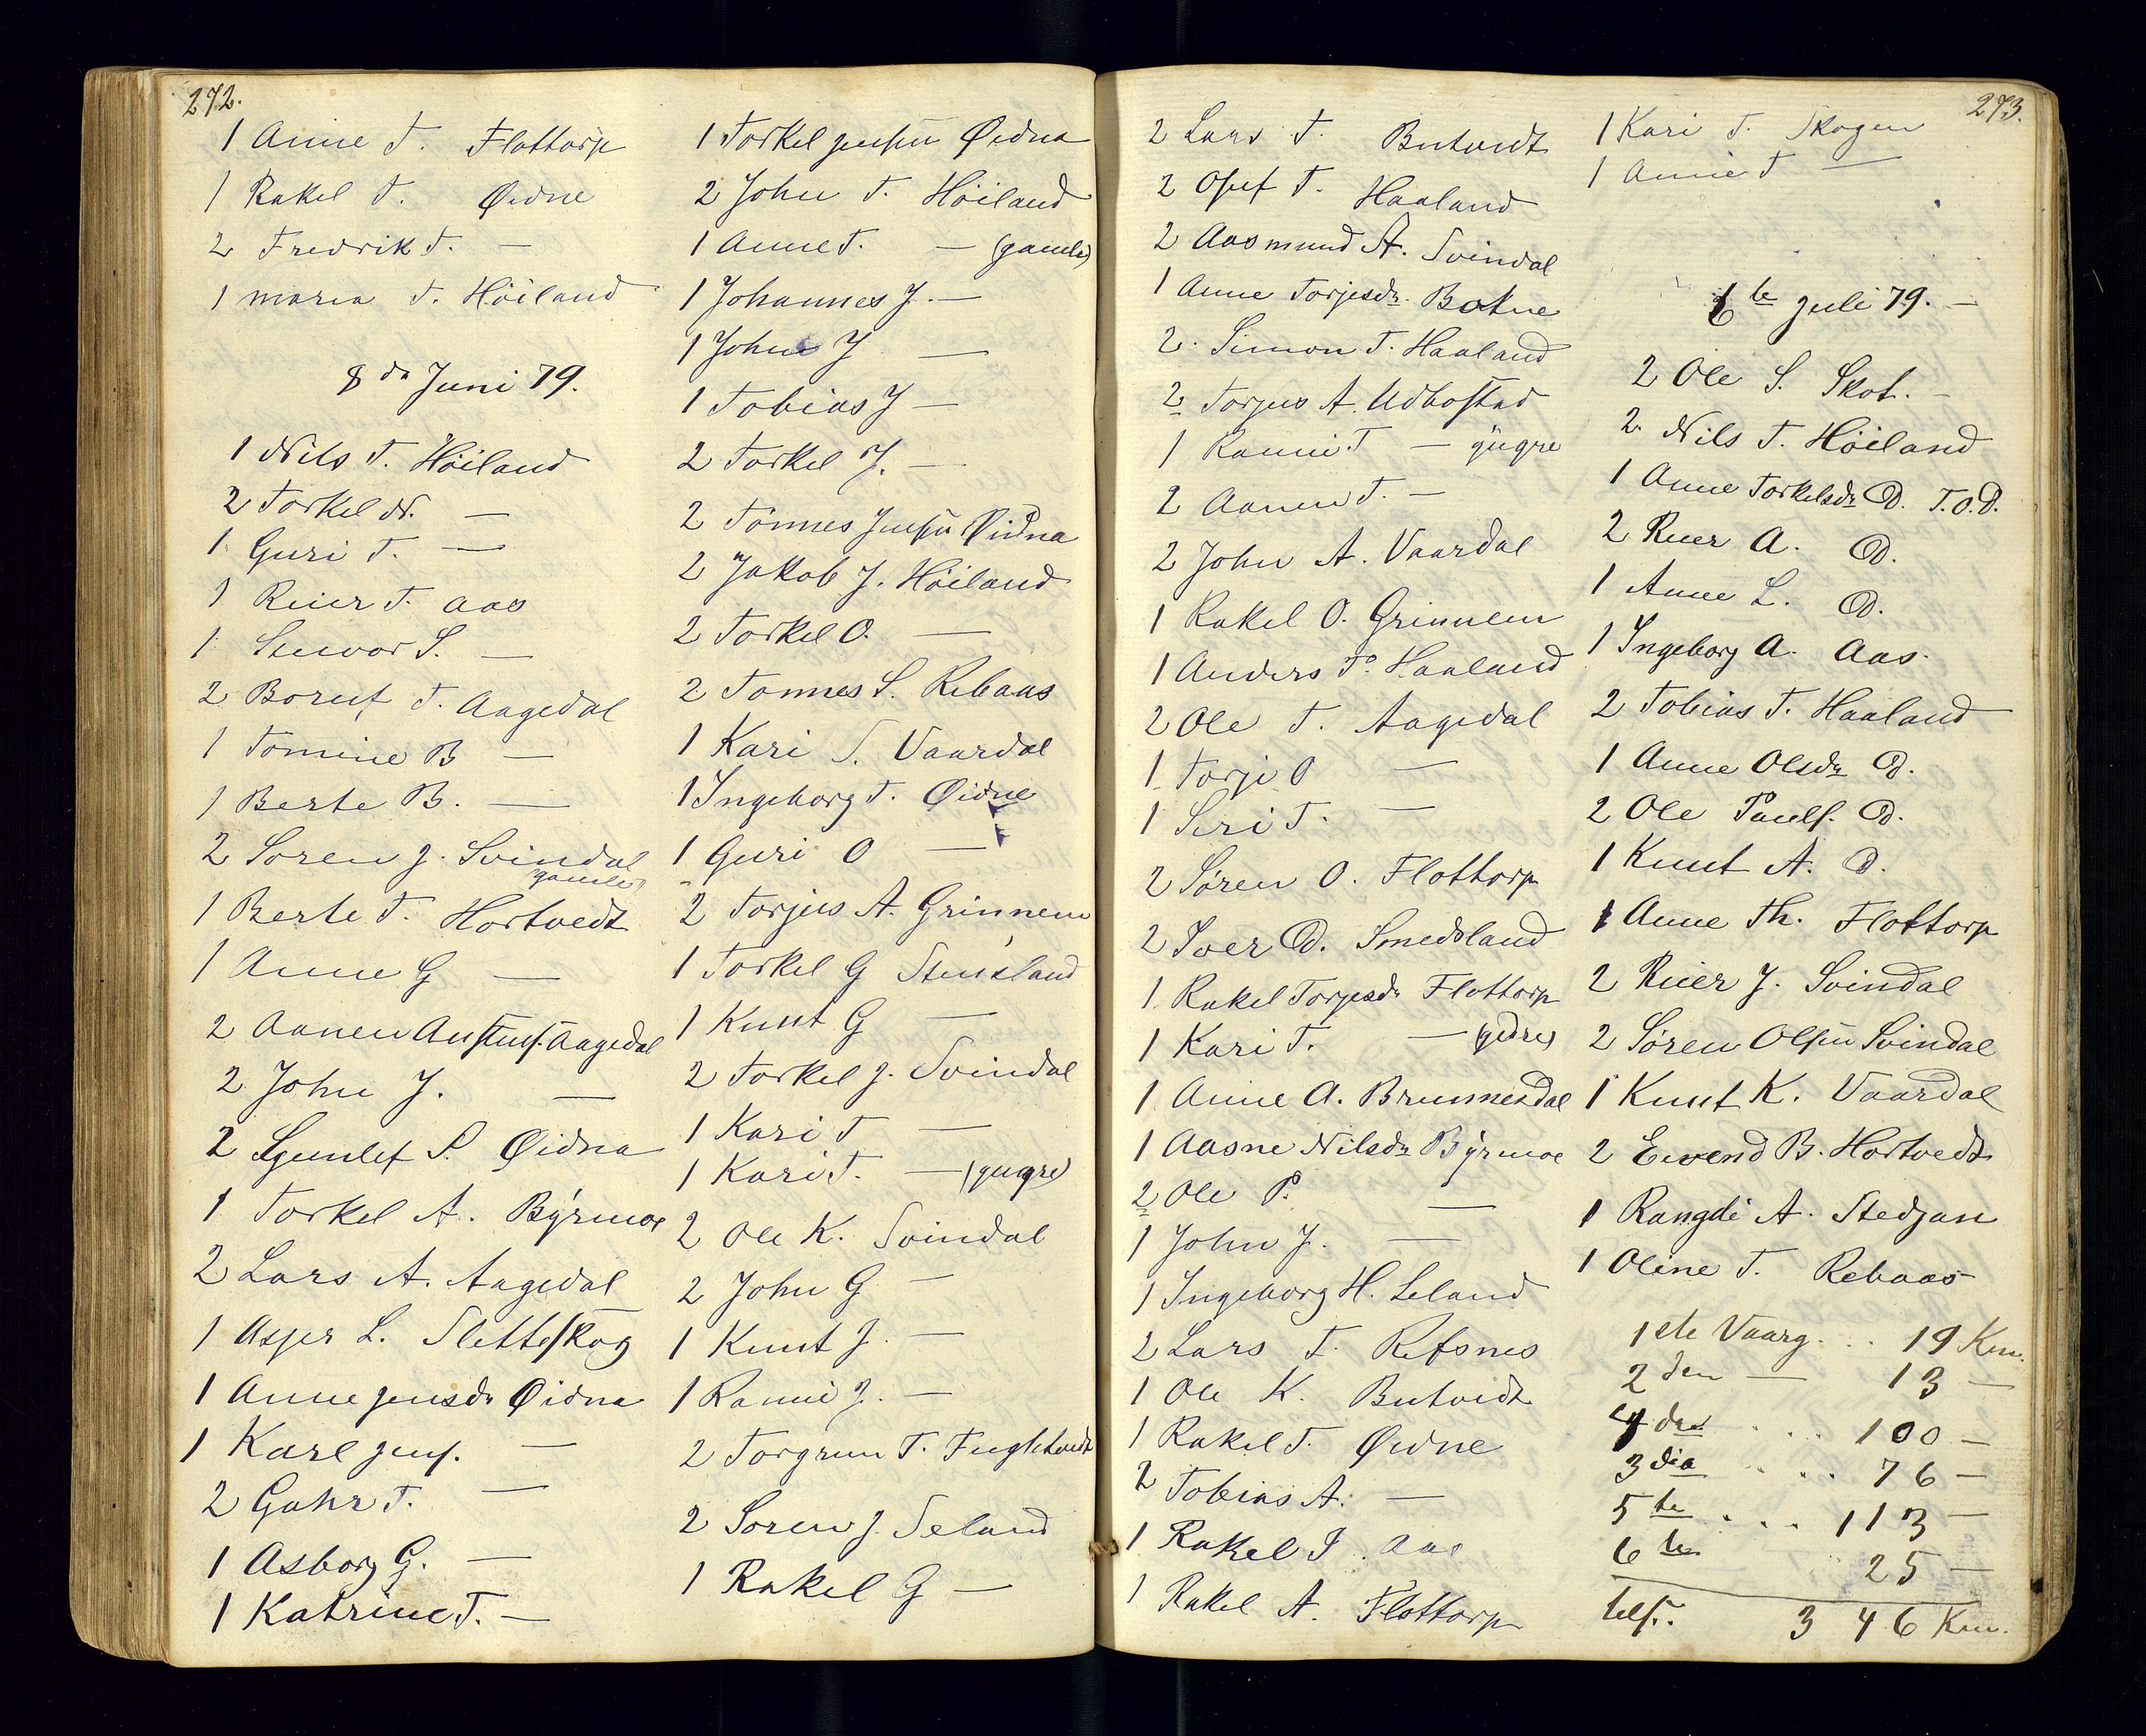 272.
1 Anne T. Flottorp
1 Rakel T. Øidne
2 Fredrik T. —
1 Maria T. Høiland
8de Juni 79.
1 Nils T. Høiland
2 Torkel N. —
1 Guri T. —
1 Reier T. Aas
1 Siewor S. —
2 Boruf T. Aagedal
1 Tomine B —
1 Berte B. —
2 Søren J. Svindal
gamle)
1 Berte T. Hortvedt
1 Anne G —
2 Aanen Austens. Aagedal
2 John J. —
2 Gunlef S. Øidna
1 Torkel A. Byrmoe
2 Lars A. Aagedal
1 Asjer L. Sletteskog
1 Anne Jensdr Øidna
1 Karl Jens. —
2 Gahr T. —
1 Asborg G. —
1 Katrine T. —
1 Torkel Jensen Øidna
2 John T. Høiland
1 Anne T. — (gamle)
1 Johannes J. —
1 John J —
1 Tobias J —
2 Torkel J. —
2 Tønnes Jensen Øidna
2 Jakob J. Høiland
2 Torkel O. —
2 Tønnes S. Rebaas
1 Kari S. Vaardal
1 Ingeborg T. Øidne
1 Guri O —
2 Torjus A. Grinnem
1 Torkel G Stensland
1 Knut G —
2 Torkel J. Svindal
1 Kari T —
1 Kari T. — (yngre)
2 Ole K. Svindal
2 John G —
1 Knut J. —
1 Rannie J. —
2 Torgrim T. Fuglestvedt
2 Søren J. Seland
1 Rakel G —
273.
2 Lars T. Butvedt
2 Osuf T. Haaland
2 Aasmund A. Svindal
1 Anne Torjesdr. Bakne
2 Simon T. Haaland
2 Torjus A. Udbostad
1 Rannie T — yngre
2 Aanen T. —
2 John A. Vaardal
1 Rakel O. Grinnem
1 Anders T. Haaland
2 Ole T. Aagedal
1 Torje O —
1 Siri T. —
2 Søren O. Flottorp
2 Iver D. Smedsland
1 Rakel Torjesdr Flottorp
1 Kari T. — (eldre)
1 Anne A. Brunnesdal
1 Aasne Nilsdr Byrmoe
2 Ole P. —
1 John J. —
1 Ingeborg H. Leland
2 Lars T. Refsnes
1 Ole K. Butvedt
1 Rakel T. Øidne
2 Tobias A. —
1 Rakel I. Aas
1 Rakel A. Flottorp
1 Kari T. Skogen
1 Anne T —
6te Juli 79. —
2 Ole S. Skot. —
2 Nils T. Høiland
1 Anne Torkelsdr D. T.O.D.
2 Reier A. D.
1 Anne L. D.
1 Ingeborg A. Aas.
2 Tobias T. Haaland
1 Anne Olsdr D.
2 Ole Pauls. D.
1 Knut A. D.
1 Anne Th. Flottorp
2 Reier J. Svindal
2 Søren Olsen Svindal
1 Knut K. Vaardal
2 Eivend B. Hortvedt
1 Rangdi A. Stedjan
1 Oline T. Rebaas
1ste Vaarg. .. 19 Km.
2den — 13 —
4de .... 100 —
3die .... 76 —
5te .... 113 —
6te 25 —
tils.. 346 Km.